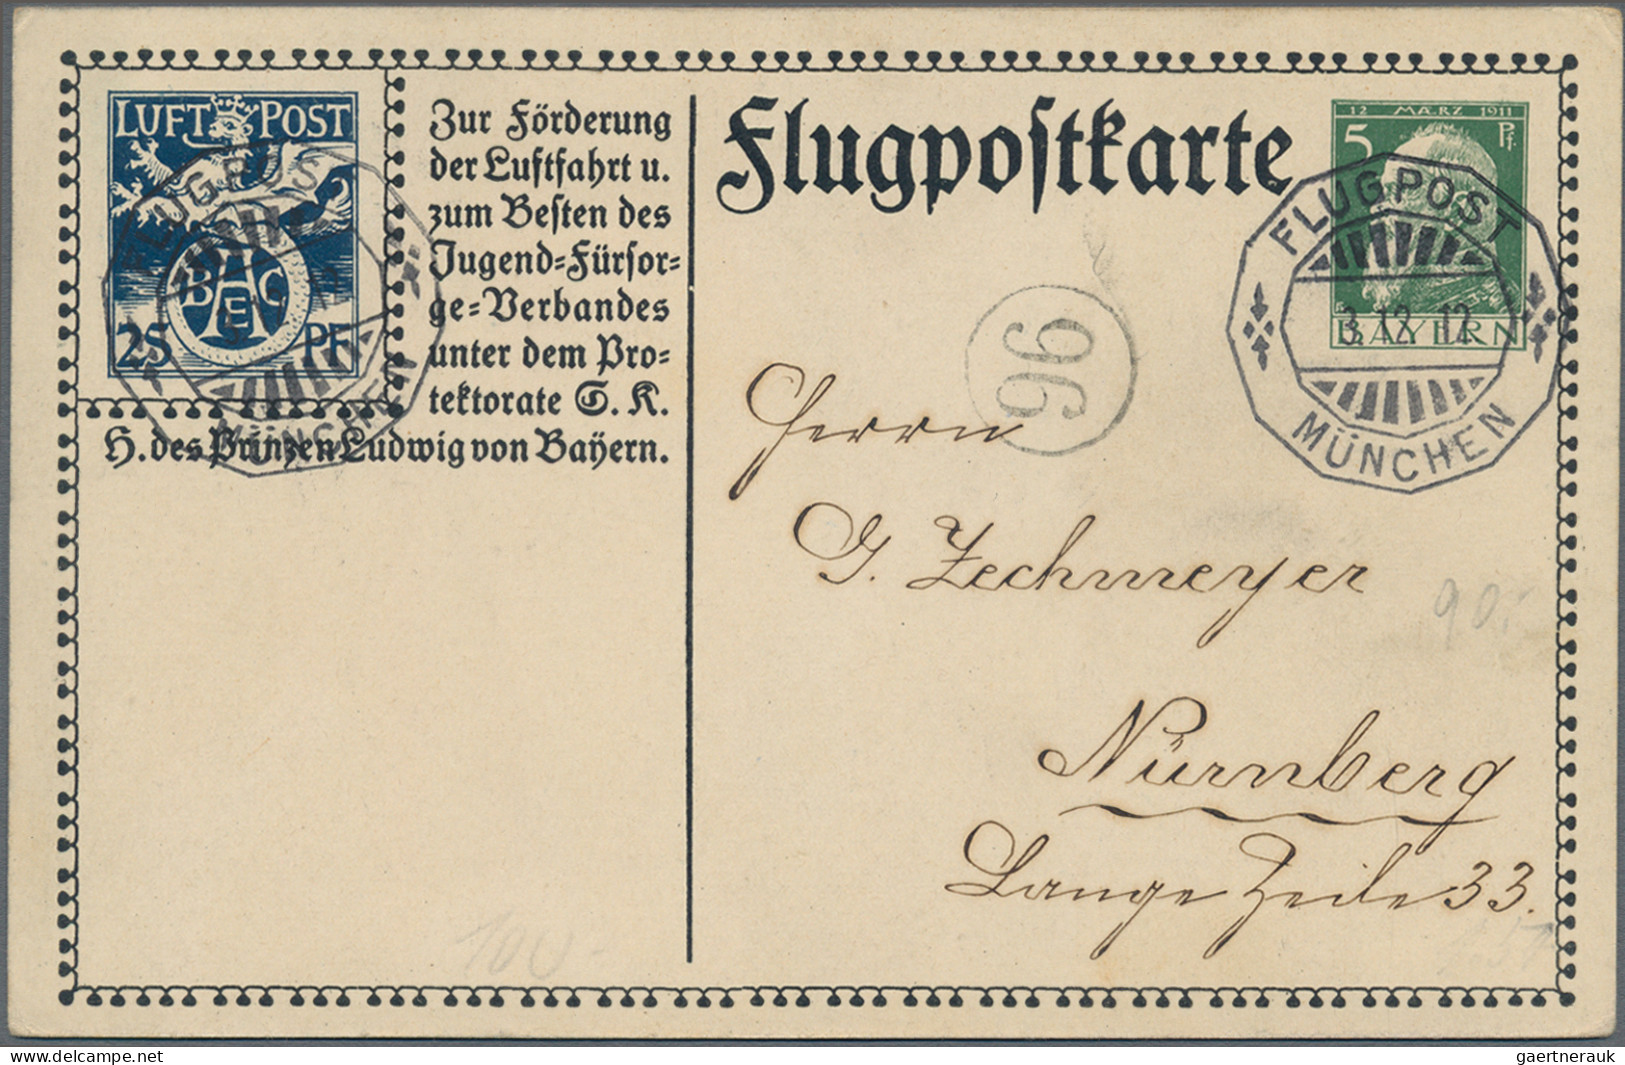 LUFT POST
BAEC
25 PF
FLUGPOST
MÜNCHEN
Zur Förderung
der Luftfahrt u.
zum Besten des
Jugend=Fürsor=
ge=Verbandes
unter dem Pro=
tektorate S. K.
H. des Prinzen Ludwig von Bayern.
Flugpostkarte
12 MÄRZ 1911
5 Pf.
BAYERN
FLUGPOST
3.12.12
MÜNCHEN
96
Herrn
G. Zechmeyer
90.-
Nürnberg
Lange Zeile 33.
100-
delcampe.net
gaertnerauk